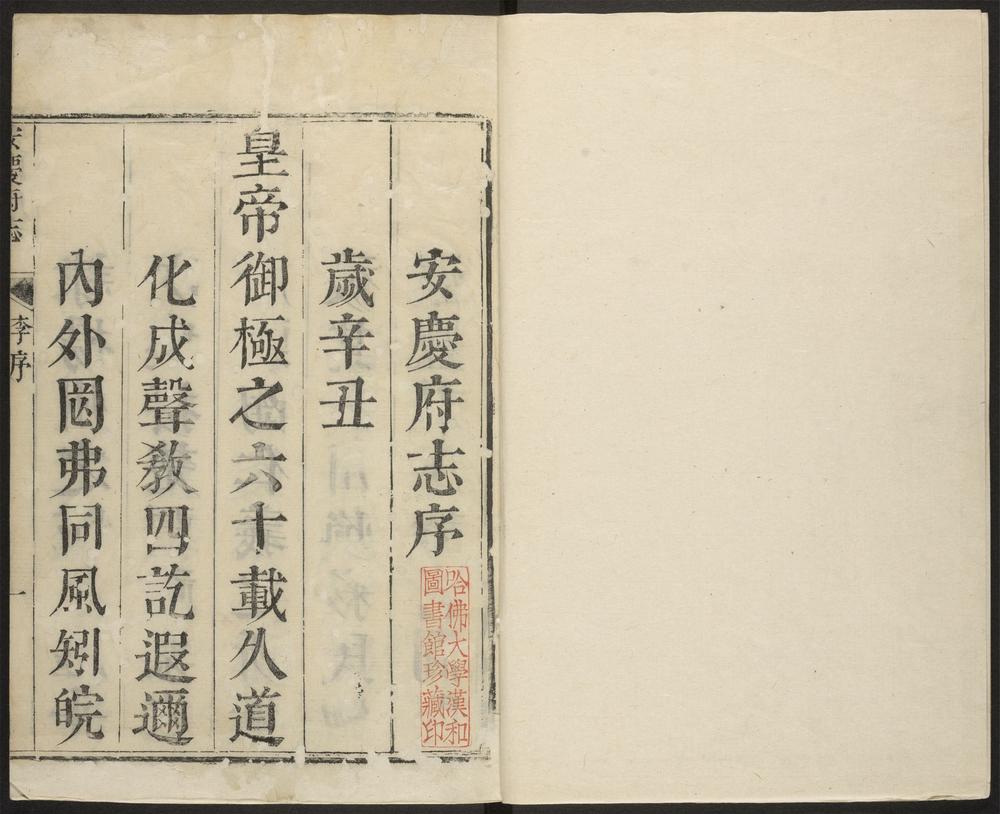 安慶府志序
哈佛大學漢和
圖書館珍藏印
歲辛丑
皇帝御極之六十載久道
化成聲教四訖遐邇
內外罔弗同風矧皖
安慶府志
李序
一